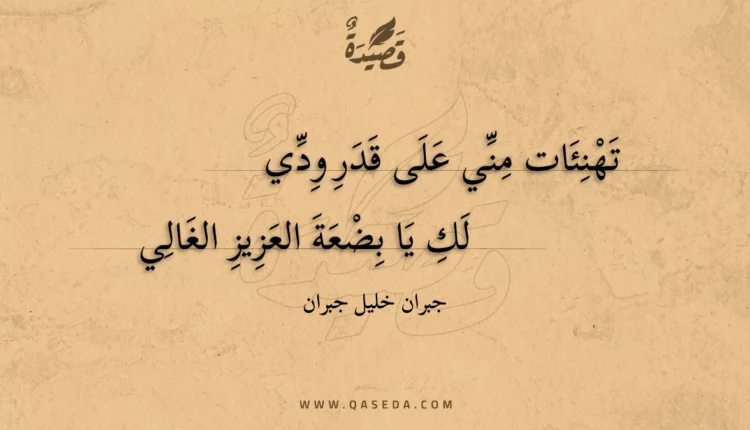 قَصِيدَةٌ
تَهْنِئَات مِنِّي عَلَى قَدَرِ وِدِّي
لَكِ يَا بِضْعَةَ العَزِيزِ الغَالِي
جبران خليل جبران
WWW.QASEDA.COM